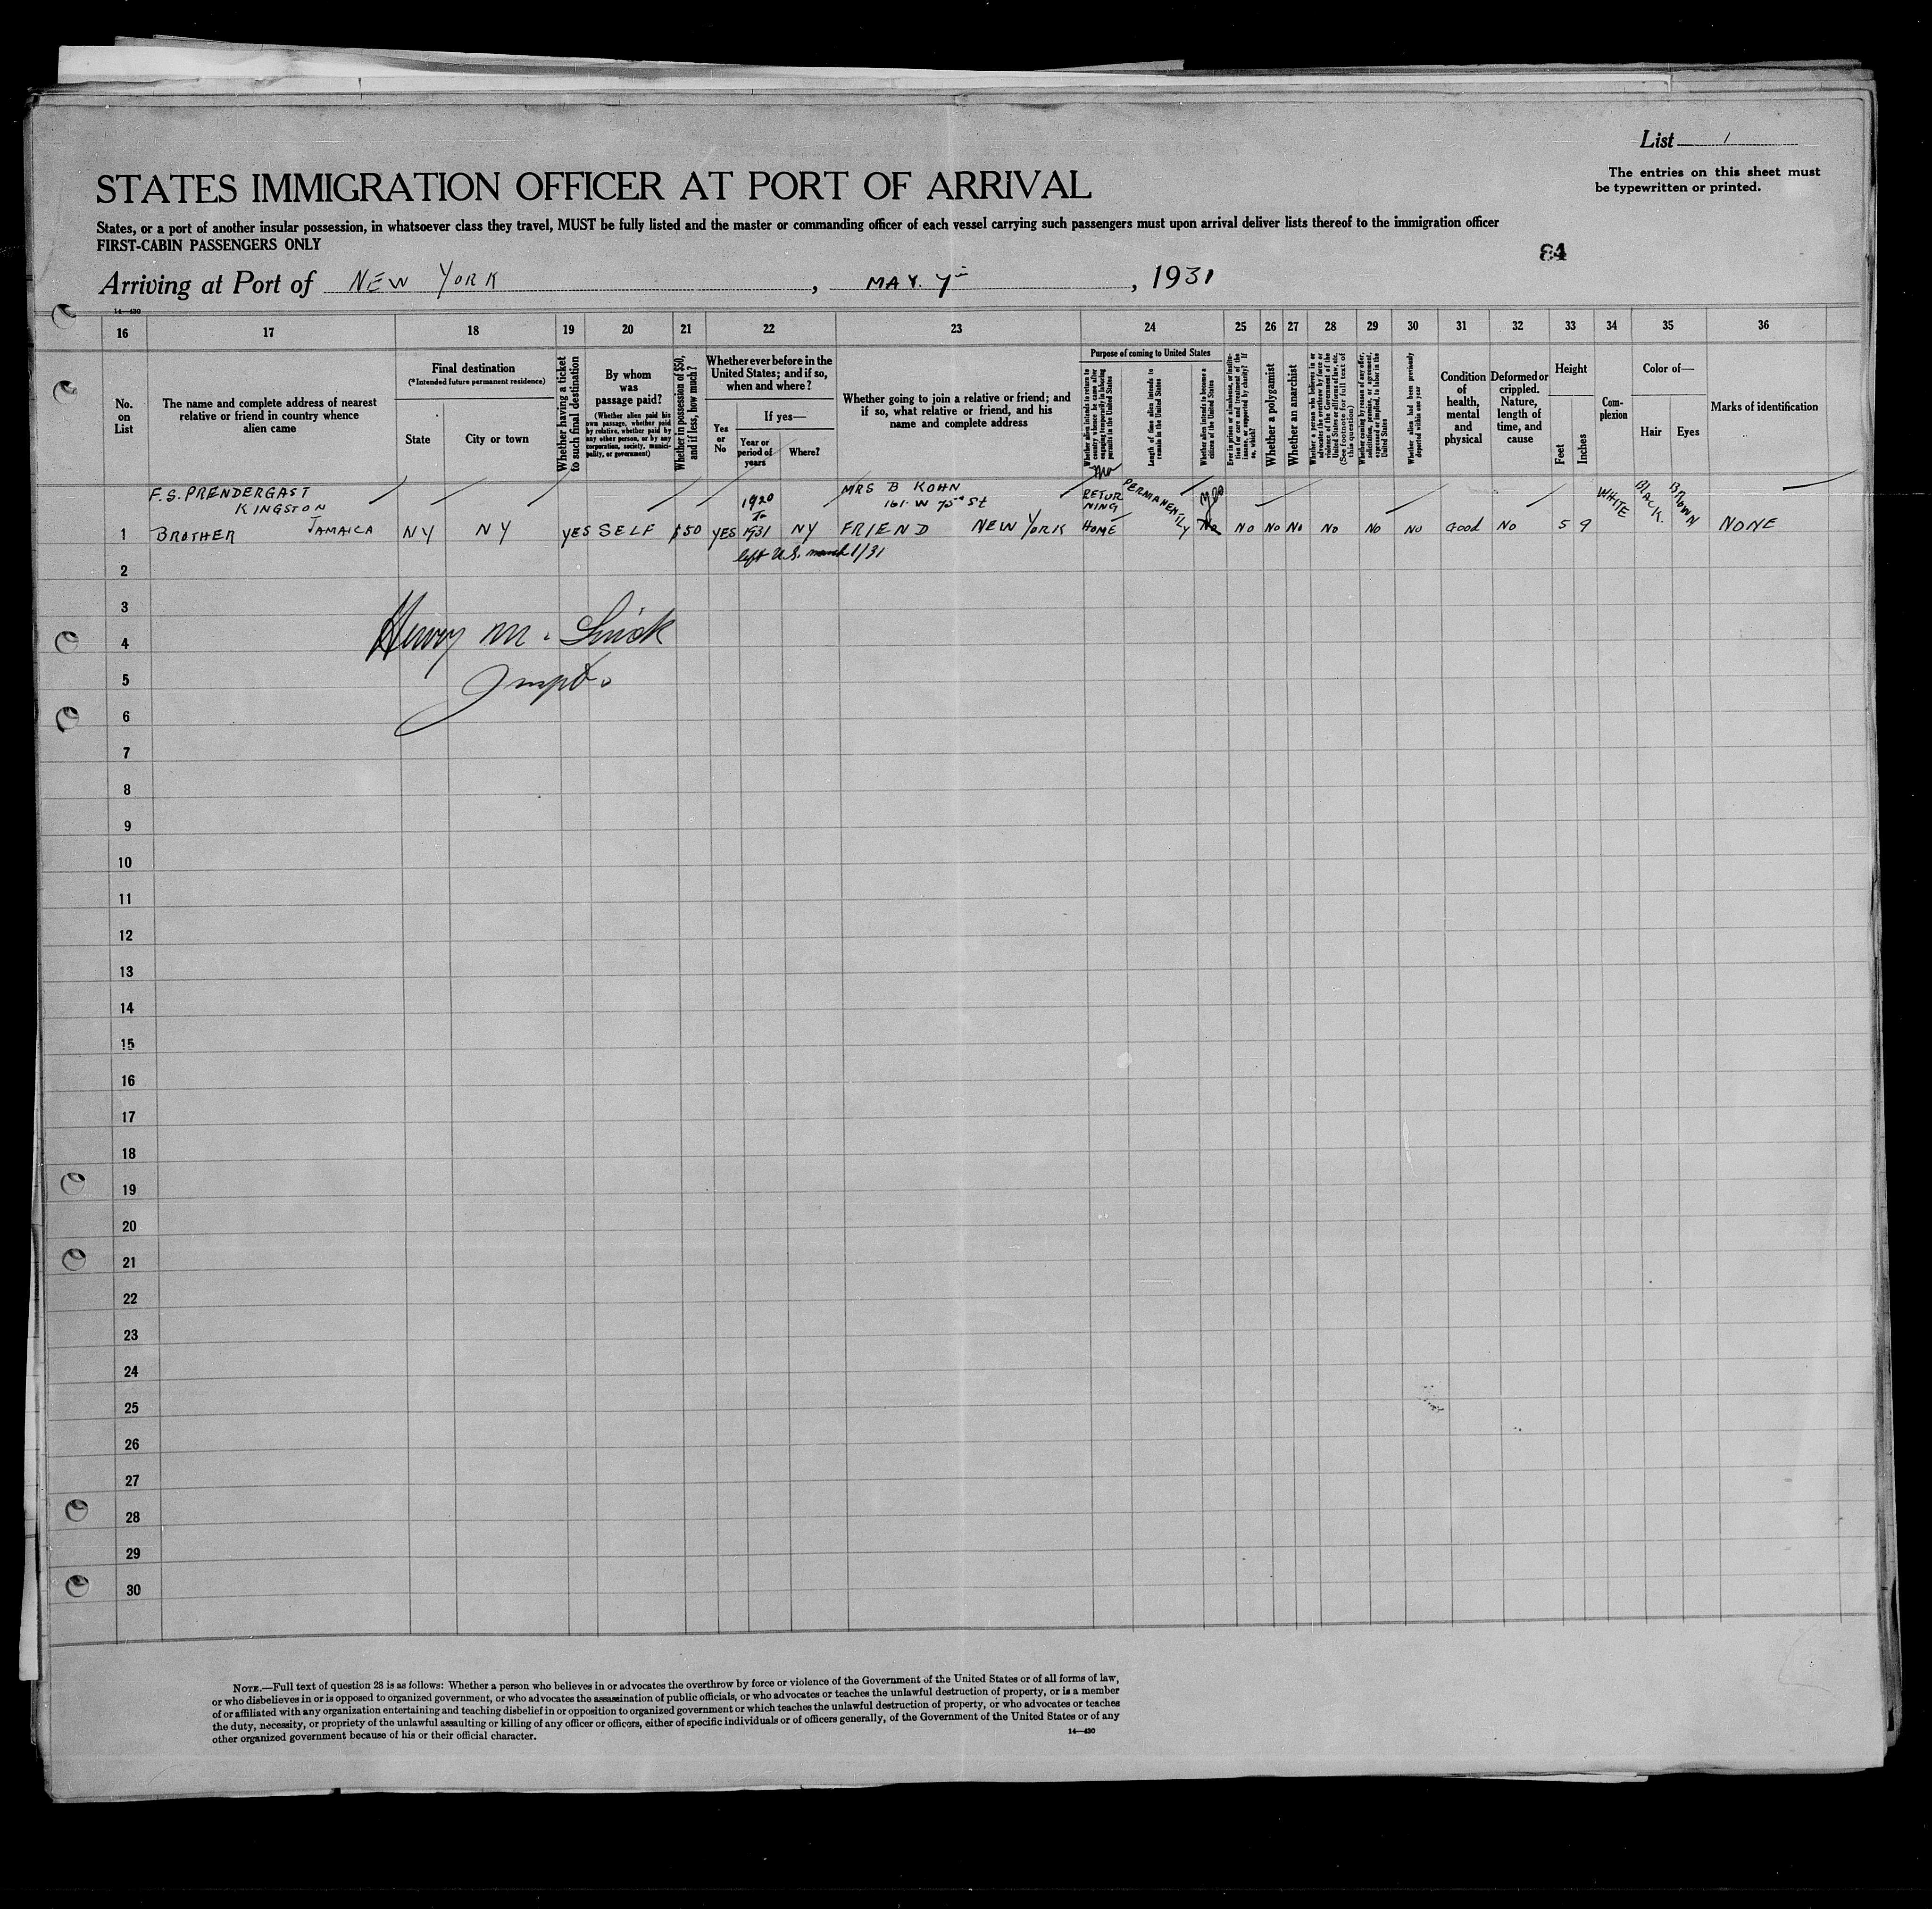 List 1
The entries on this sheet must
be typewritten or printed.
STATES IMMIGRATION OFFICER AT PORT OF ARRIVAL
States, or a port of another insular possession, in whatsoever class they travel, MUST be fully listed and the master or commanding officer of each vessel carrying such passengers must upon arrival deliver lists thereof to the immigration officer
FIRST-CABIN PASSENGERS ONLY
84
Arriving at Port of NEW YORK, MAY. 7, 1931
14—430
16 17 18 19 20 21 22 23 24 25 26 27 28 29 30 31 32 33 34 35 36
No.
on
List
The name and complete address of nearest
relative or friend in country whence
alien came
Final destination
(*Intended future permanent residence)
State
City or town
Whether having a ticket
to such final destination
By whom
was
passage paid?
(Whether alien paid his
own passage, whether paid
by relative, whether paid by
any other person, or by any
corporation, society, munici-
pality, or government)
Whether in possession of $50,
and if less, how much?
Whether ever before in the
United States; and if so,
when and where?
Yes
or
No
If yes—
Year or
period of
years
Where?
Whether going to join a relative or friend; and
if so, what relative or friend, and his
name and complete address
Purpose of coming to United States
Whether alien intends to return to
country whence he came after
engaging temporarily in laboring
pursuits in the United States
Length of time alien intends to
remain in the United States
Whether alien intends to become a
citizen of the United States
Ever in prison or almshouse, or institu-
tion for care and treatment of the
insane, or supported by charity? If
so, which?
Whether a polygamist
Whether an anarchist
Whether a person who believes in or
advocates the overthrow by force or
violence of the Government of the
United States or all forms of law, etc.
(See footnote for full text of
this question)
Whether coming by reason of any offer,
solicitation, promise, or agreement,
expressed or implied, to labor in the
United States
Whether alien had been previously
deported within one year
Condition
of
health,
mental
and
physical
Deformed or
crippled.
Nature,
length of
time, and
cause
Height
Feet
Inches
Com-
plexion
Color of—
Hair
Eyes
Marks of identification
F.S. PRENDERGAST
KINGSTON
1 BROTHER JAMAICA NY NY YES SELF $50 YES 1920 To 1931 NY
MRS B KOHN
161. W 75 St
FRIEND NEW YORK
No
RETUR
NING
HOME
PERMANENTLY
Yes
No
NO NO NO NO NO NO Good NO 5 9 WHITE BLACK. BROWN NONE
left U.S. march 1/31
2
3
Henry M.
4
5
Inspt.
6
7
8
9
10
11
12
13
14
15
16
17
18
19
20
21
22
23
24
25
26
27
28
29
30
NOTE.—Full text of question 28 is as follows: Whether a person who believes in or advocates the overthrow by force or violence of the Government of the United States or of all forms of law,
or who disbelieves in or is opposed to organized government, or who advocates the assassination of public officials, or who advocates or teaches the unlawful destruction of property, or is a member
of or affiliated with any organization entertaining and teaching disbelief in or opposition to organized government or which teaches the unlawful destruction of property, or who advocates or teaches
the duty, necessity, or propriety of the unlawful assaulting or killing of any officer or officers, either of specific individuals or of officers generally, of the Government of the United States or of any
other organized government because of his or their official character.
14—430